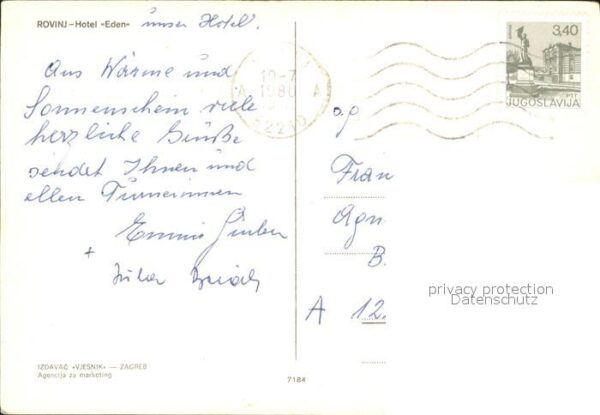 ROVINJ – Hotel »Eden« unser Hotel.
Aus Wärme und
Sonnenschein viele
herzliche Grüße
sendet Ihnen und
allen Turnerinnen
+
10-7
1980
A A
52210
3,40
PTT
JUGOSLAVIJA
Frau
Agn
B.
A 12.
privacy protection
Datenschutz
IZDAVAČ »VJESNIK« — ZAGREB
Agencija za marketing
7184